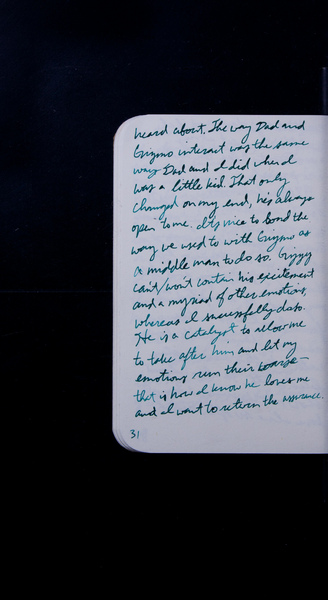 heard about. The way Dad and
Gizmo interact was the same
way Dad and I did when I
was a little kid. That only
changed on my end, he's always
open to me. It's nice to bond the
way we used to with Gizmo as
a middle man to do so. Gizzy
can't/won't contain his excitement
and a myriad of other emotions,
whereas I successfully do so.
He is a catalyst to allow me
to take after him and let my
emotions run their course—
that is how I know he loves me
and I want to return the assurance.
31